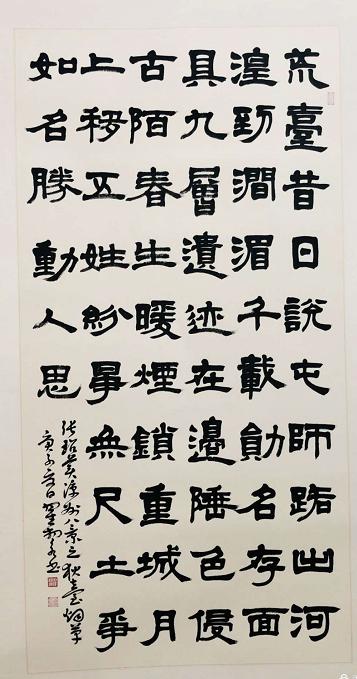 荒臺昔日說屯師踞出河
湟勁澗湄千載勛名存面
具九層遺迹在邊陲色侵
古陌春生暖煙鎖重城月
上移五姓紛爭無尺土爭
如名勝動人思
張玿美涼州八景之狄臺烟草
庚子夏日